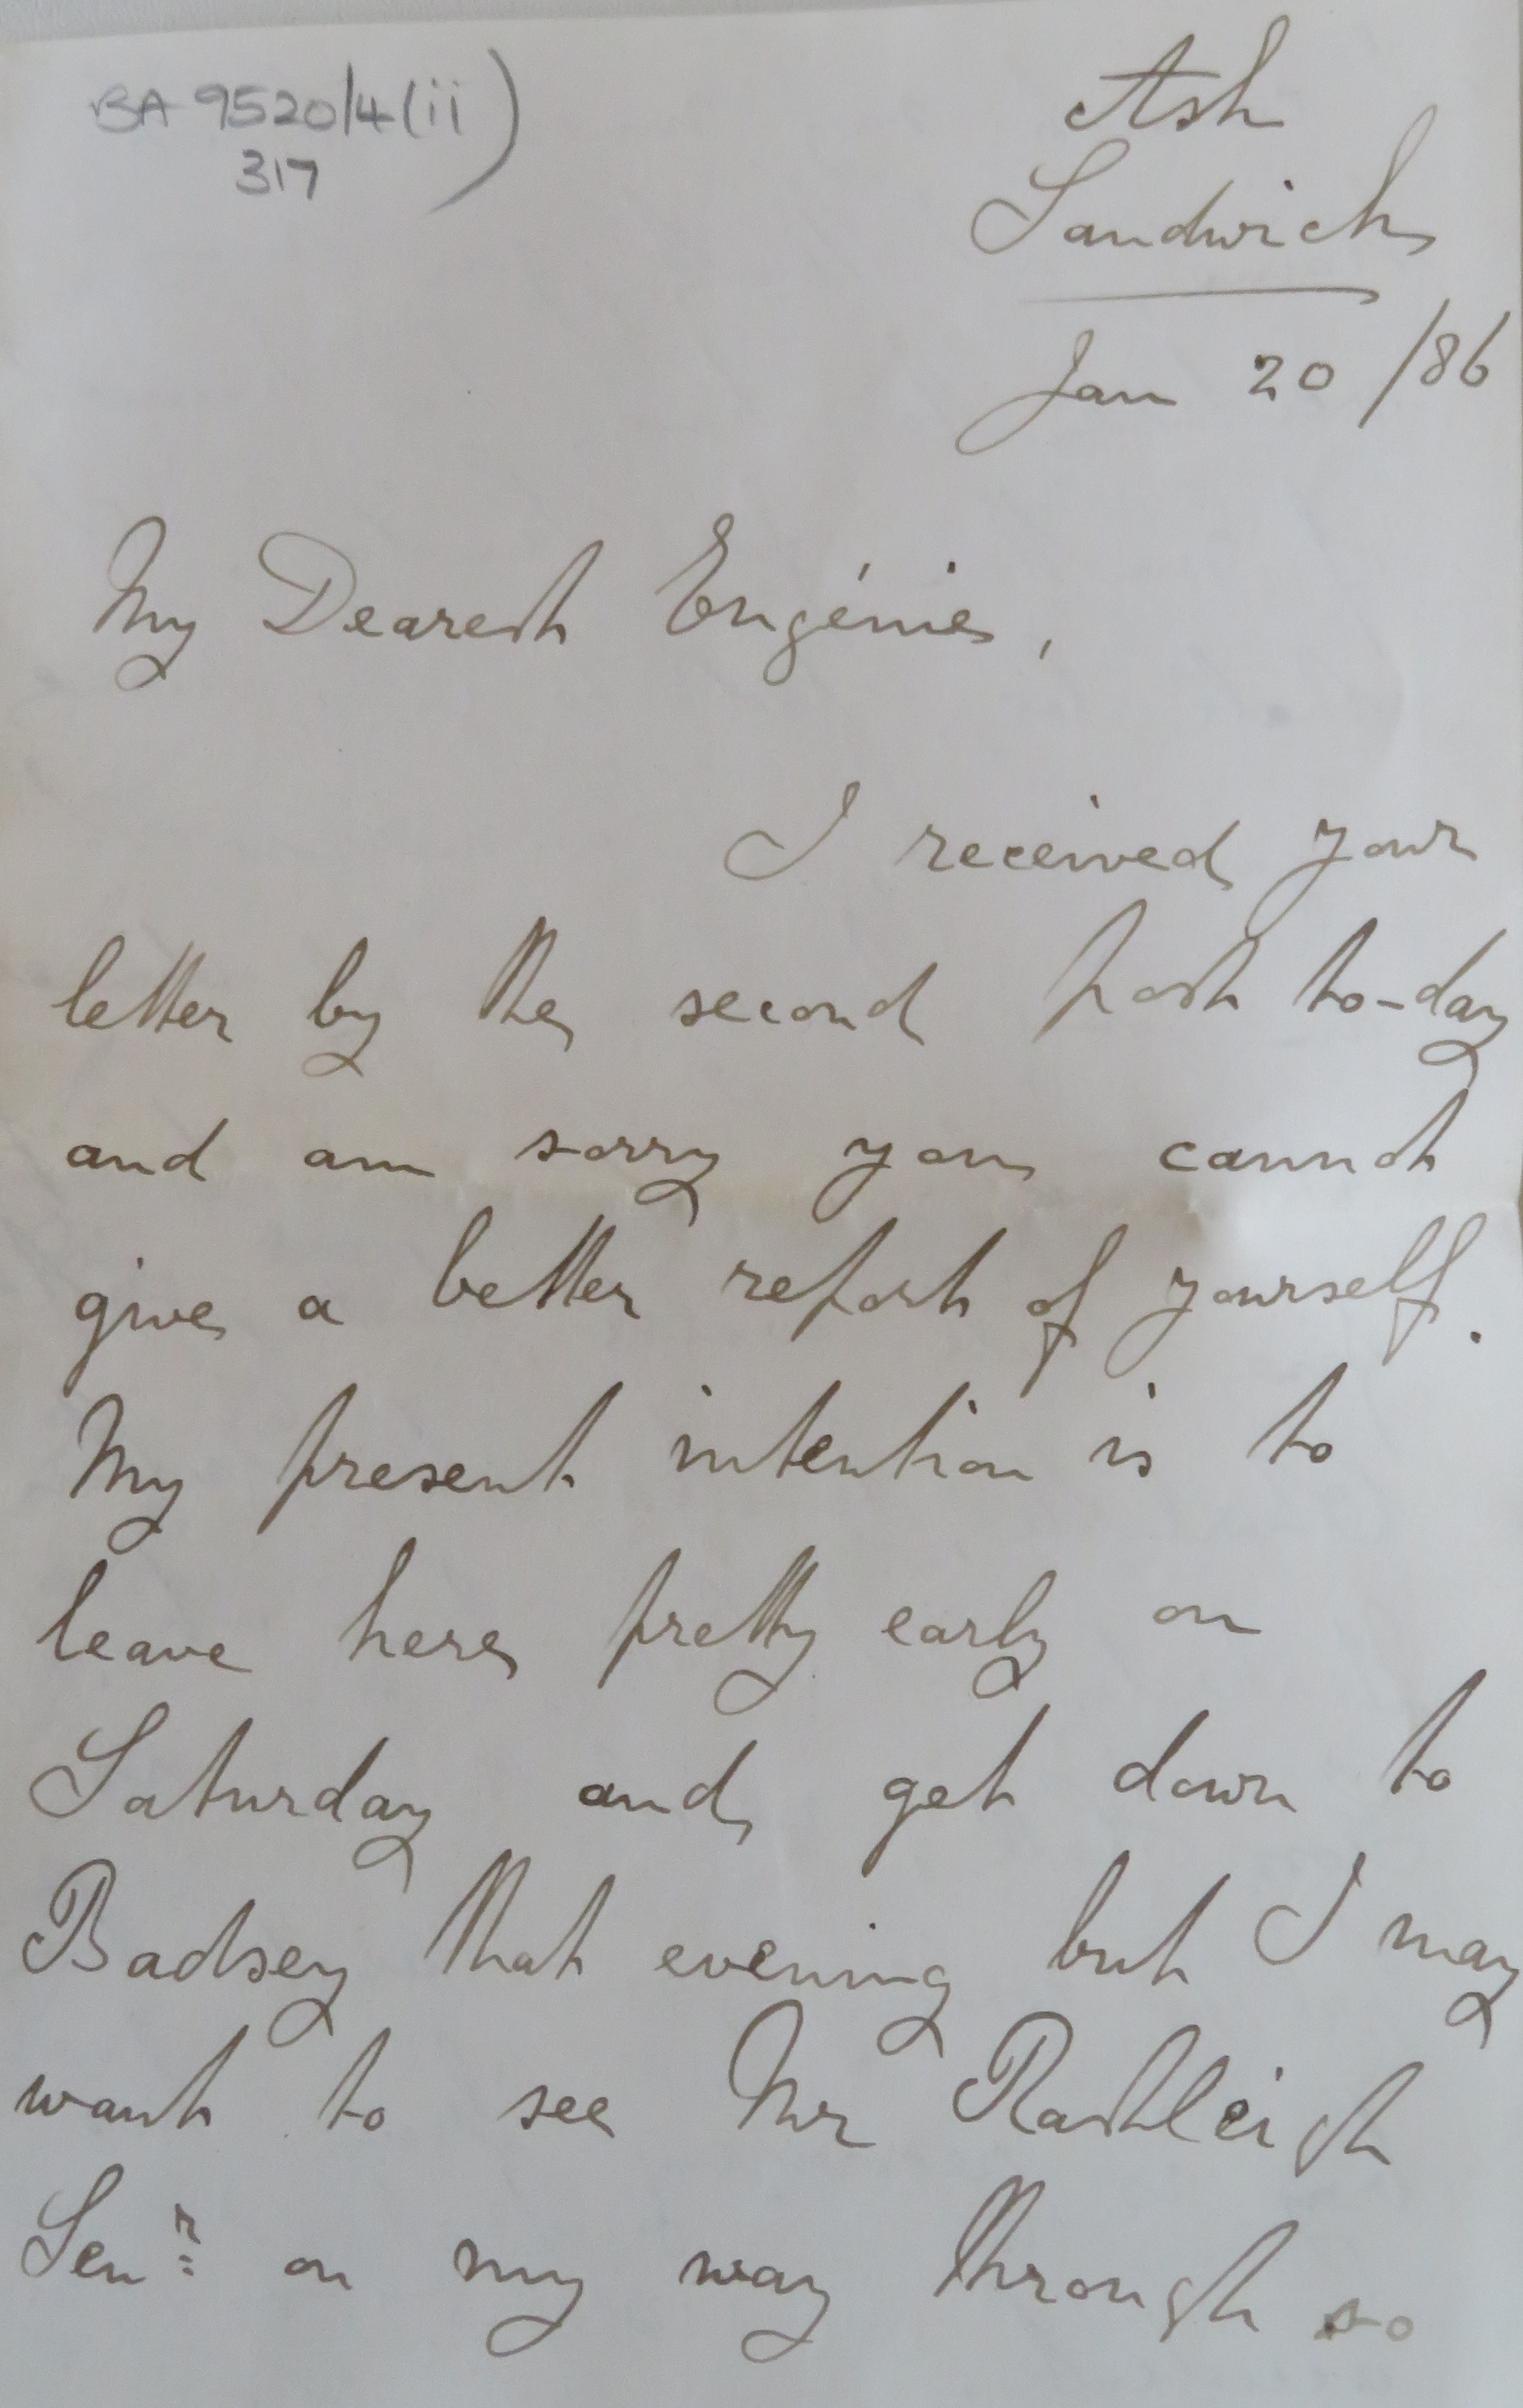 BA 9520/4(ii)
317
Ash
Sandwich
Jan 20/86
My Dearest Eugénie,
I received your
letter by the second post to-day
and am sorry you cannot
give a better report of yourself.
My present intention is to
leave here pretty early on
Saturday and get down to
Badsey that evening but I may
want to see Mr Rashleigh
Senr on my way through so